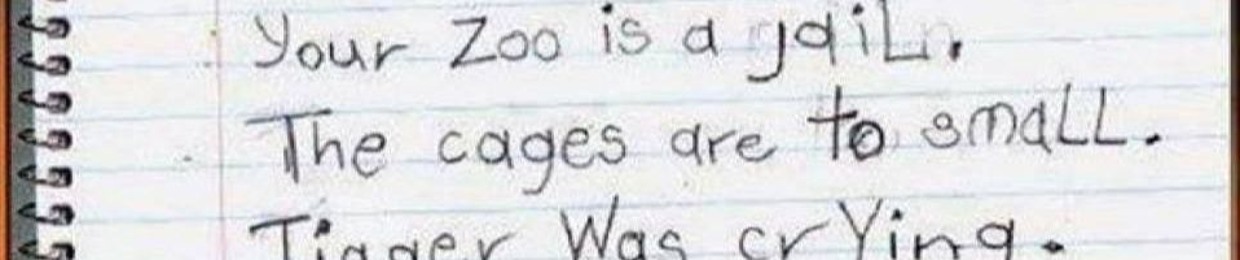 Your Zoo is a jaiL.
The cages are to smaLL.
Tigger Was crYing.